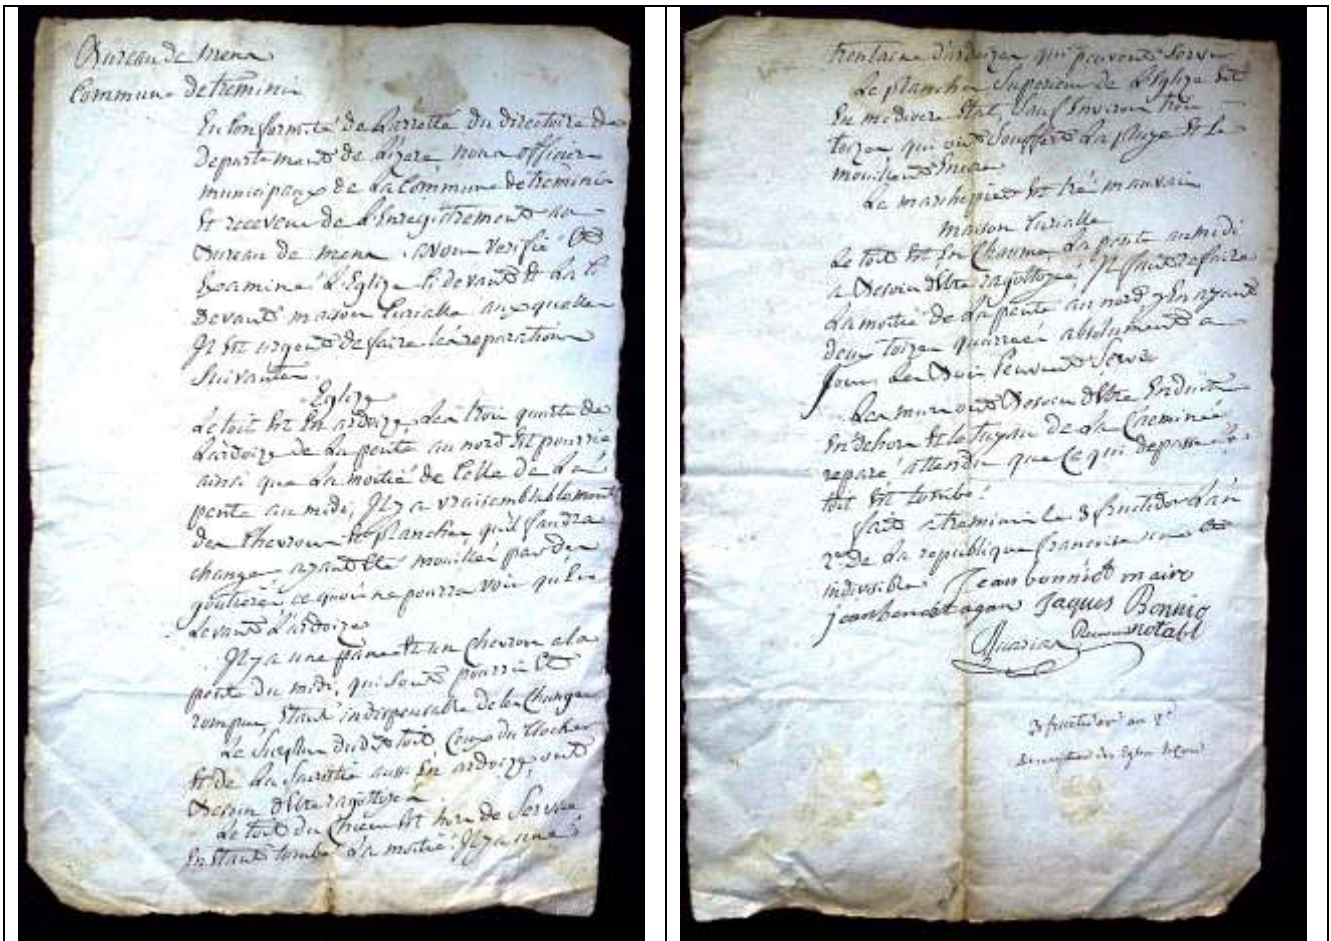 Bureau de mens
Commune de treminis
En Conformité de Larretté du directoire du
departement de Lizere nous officiers
municipaux de La Commune de treminis
Et receveur de L'Enregistrement au
Bureau de mens avons verifié Et
Examiné L'Eglize Ci devant Et La Ci
devant maison Curialle auxquelles
Il Est urgent de faire les reparations
Suivantes.
Eglize
Le toit Est En ardoize, Les trois quarts de
L'ardoize de La pente au nord Est pourrie
ainsi que La moitié de Celle de La
pente au midi, Il y a vraisemblablement
des Chevrons Et planches qu'il faudra
changer ayant Eté mouillés par des
goutieres, ce qu'on ne pourra voir qu'En
Levant L'ardoize
Il y a une panne Et un Chevron a la
pente du midi, qui Sont pourris Et
rompus, Etant indispensable de les Changer
Le Surplus du dit toit, Ceux du Clocher
Et de La Sacristie aussi En ardoize, ont
Besoin d'Etre ragottoyés
Le toit du Chœur Est hors de Service
En Etant tombé La moitié. Il y a une
trentaine d'ardoizes qui peuvent Servir
Le plancher Superieur de L'Eglize Est
En mediocre Etat, Sauf Environ trois
toizes qui ont Souffert La pluye Et le
mouillent Encore
Le marchepied Est tres mauvais
maison Curialle
Le toit Est En Chaume, La pente au midi
a Besoin d'Etre ragottoyée, Il faut refaire
La moitié de La pente au nord y En ayant
deux toizes quarrées absolument a
jour, Les Bois peuvent Servir
Les murs ont Besoin d'Etre Enduits
En dehors Et le tuyau de La Cheminée
reparé attendu que Ce qui depasse le
toit Est tombé.
fait a treminis le 3 fructidor L'an
2e De La republique francoise une Et
indivisible. Jean bonniot maire
jean benoit agan Jaques Bonnio
notabl
3 fructidor an 2e
description des Eglise